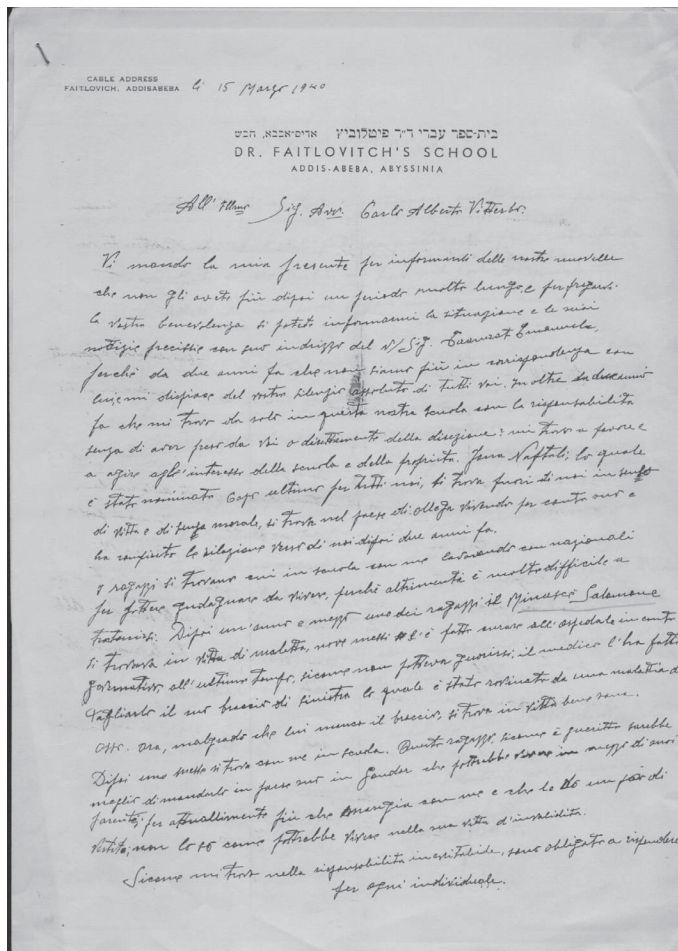 CABLE ADDRESS
FAITLOVICH, ADDISABEBA li 15 Marzo 1940
בית-ספר עברי ד"ר פיטלוביץ אדיס-אבבא, חבש
DR. FAITLOVITCH'S SCHOOL
ADDIS-ABEBA, ABYSSINIA
All' Illmo Sig. Avv. Carlo Alberto Vitterbo.
Vi mando la mia presente per informanti delle nostre nuovelle
che non gli avete più dipoi un periodo molto lungo, e per
la vostra benevolenza si potete informarmi la situazione e le miei
notizie precisie con suo indrizzo del v/ Sig. Taamrat Emanuele,
perchè da due anni fa che non siamo più in corrispondenza con
lui, mi dispiace del vostro silenzio assoluto di tutti voi. Inoltre da due anni
fa che mi trovo da solo in questa nostra scuola con la risponsabilità
senza di aver preso da voi o direttamente della direzione: mi trovo a favore e
a agire agl'interesse della scuola e della propietà. Jona Naftali, lo quale
è stato nominato Capo ultimo per tutti noi, si trova fuori di noi in senso
di vitta e di senso morale, si trova nel paese di vivendo per conto suo e
ha la rilazione verso di noi dipoi due anni fa.
I ragazzi si trovano qui in scuola con me lavorando con nazionali
per pottere guadagnare da vivere, perchè altrimenti è molto difficile a
Dipoi un'anno e mezzo uno dei ragazzi il Minassè Salomone
si trovava in vitta di malatta, nove messi si è fatto curare all'ospedale in conto
governativo, all'ultimo tempo, sicome non potteva guarirsi, il medico l'ha fatto
tagliarlo il suo braccio di sinistra lo quale è stato rovinato da una malattia d
Ora, malgrado che lui manca il braccio, si trova in vitta bene sana.
Dipoi uno messe si trova con me in scuola. Questo ragazzo, sicome è guaritto sarebbe
meglio di mandarlo in paese suo in Gondar che potrebbe vivere in mezzo di suoi
parenti, per attuallimente più che mangia con me e che lo do un paio di
vestito, non lo so come pottrebbe vivere nella sua vitta d'invalidità.
Sicome mi trovo nella risponsabilità inevitabile, sono obligato a rispondere
per ogni individuale.